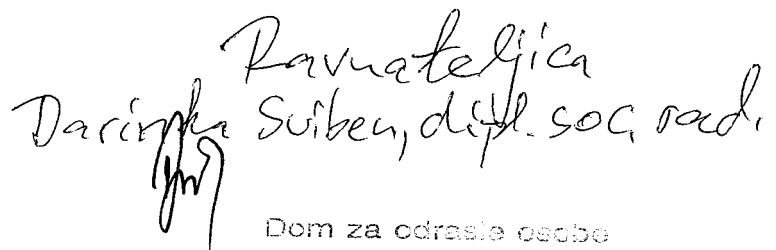 Ravnateljica
Darinka Sviben, dipl. soc. rad.
Dom za odrasle osobe